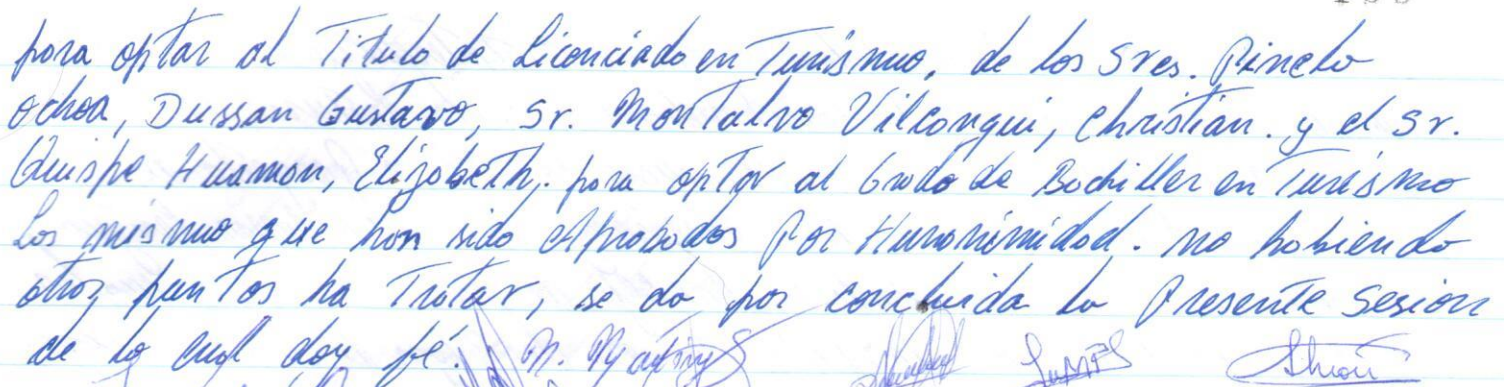 para optar al Titulo de Licenciado en Turismo, de los Sres. Pinelo
Ochoa, Dussan Gustavo, Sr. Montalvo Vilcanqui, Christian. y el Sr.
Quispe Huaman, Elizabeth, para optar al Grado de Bachiller en Turismo
Los mismo que han sido Aprobados Por Hunanimidad. no habiendo
otros puntos ha Tratar, se da por concluida la Presente Sesion
de lo cual doy fé.